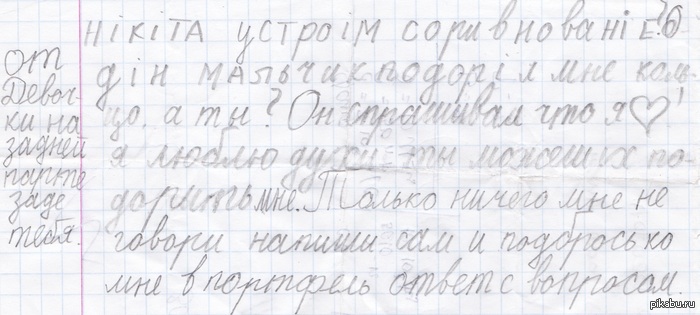 от
Девоч-
ки на
задней
парте
заде
тебя.
Нікіта устроім сорившнованіе? О
дін мальчик подоріл мне коль
цо. а ты? Он спрашивал что я ♡!
я люблю духи ты можеш их по
дорить мне. Только ничего мне не
говори напиши сам и подбрось ко
мне в портфель ответ с вопросом.
pikabu.ru